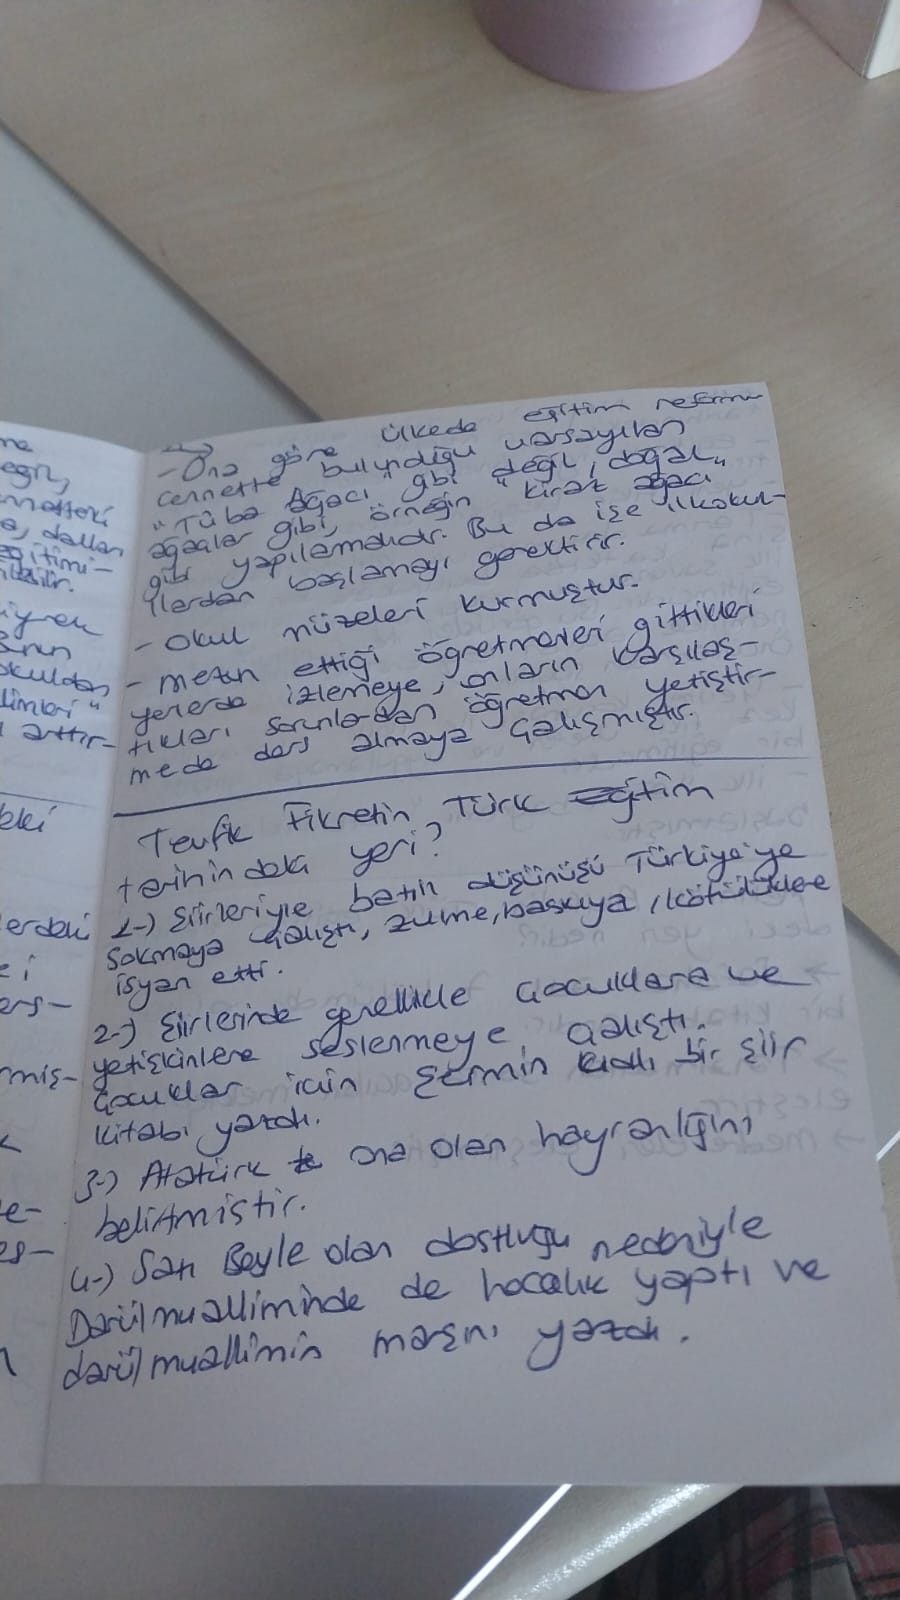 - Ona göre ülkede eğitim reformu
cennette bulunduğu varsayılan
"Tûba Ağacı" gibi değil, doğal
ağaçlar gibi, örneğin "kiraz ağacı"
gibi yapılamalıdır. Bu da işe ilkokul-
lardan başlamayı gerektirir.
- okul müzeleri kurmuştur.
- mezun ettiği öğretmenleri gittikleri
yererde izlemeye, onların karşılaş-
tıkları sorunlardan öğretmen yetiştir-
mede ders almaya çalışmıştır.
Tevfik Fikretin Türk Eğitim
tarihindeki yeri?
1-) Şiirleriyle batılı düşünüşü Türkiye'ye
sokmaya çalıştı, zulme, baskıya, kötülüklere
isyan etti.
2-) Şiirlerinde genellikle çocuklara ve
yetişkinlere seslenmeye çalıştı.
Çocuklar için Şermin adlı bir şiir
kitabı yazdı.
3-) Atatürk ona olan hayranlığını
belirtmiştir.
4-) Satı Beyle olan dostluğu nedeniyle
Darülmualliminde de hocalık yaptı ve
darülmuallimin marşını yazdı.
egil,
dalları
eğitimi-
okuldan
arttır-
erdeki
ers-
miş-